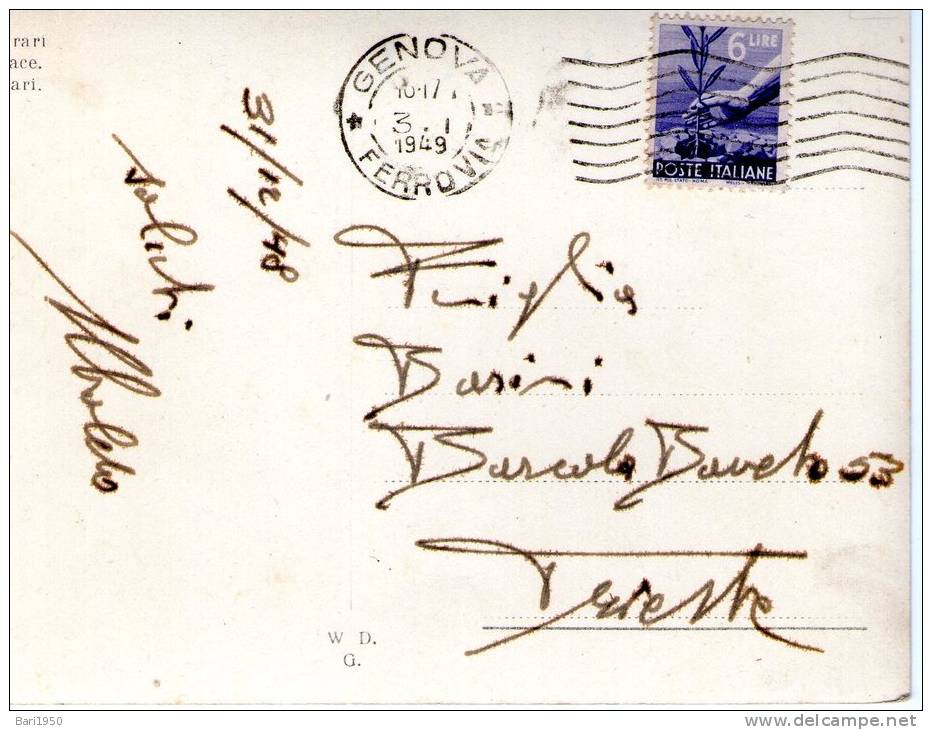 rari
ace.
ari.
GENOVA
16-17
3.1
1949
FERROVIA
6 LIRE
POSTE ITALIANE
31/12/48
saluti
Barcola Boveto 53
Trieste
W D.
G.
Bari1950
www.delcampe.net